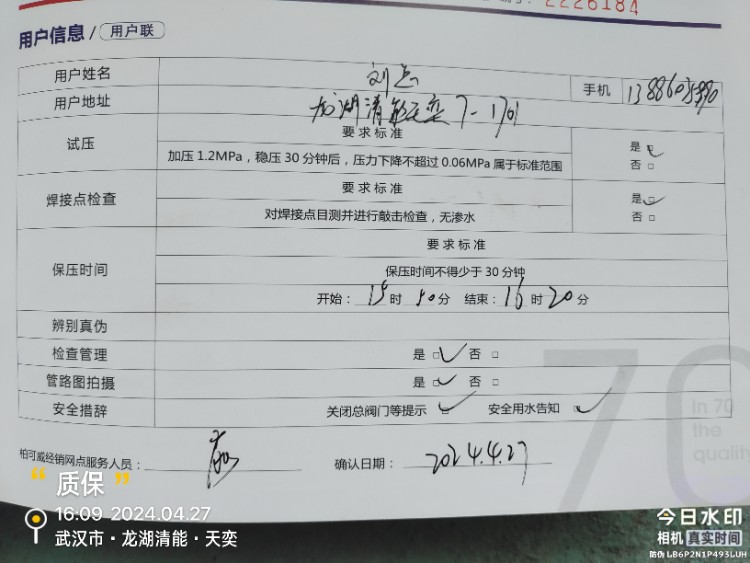 2226184
用户信息 / 用户联
用户姓名 刘志 手机
用户地址 龙湖清能天奕 7-1701
试压 要求标准
加压 1.2MPa，稳压 30 分钟后，压力下降不超过 0.06MPa 属于标准范围 是 □ 否 □
焊接点检查 要求标准
对焊接点目测并进行敲击检查，无渗水 是 □ 否 □
保压时间 要求标准
保压时间不得少于 30 分钟
开始： 15 时 50 分 结束： 16 时 20 分
辨别真伪
检查管理 是 □ 否 □
管路图拍摄 是 □ 否 □
安全措辞 关闭总阀门等提示 □ 安全用水告知 □
柏可威经销网点服务人员： 确认日期： 2024.4.27
70
In 70
the
quality
“质保”
16:09 2024.04.27
武汉市·龙湖清能·天奕
今日水印
相机 真实时间
防伪 LB6P2N1P493LUH